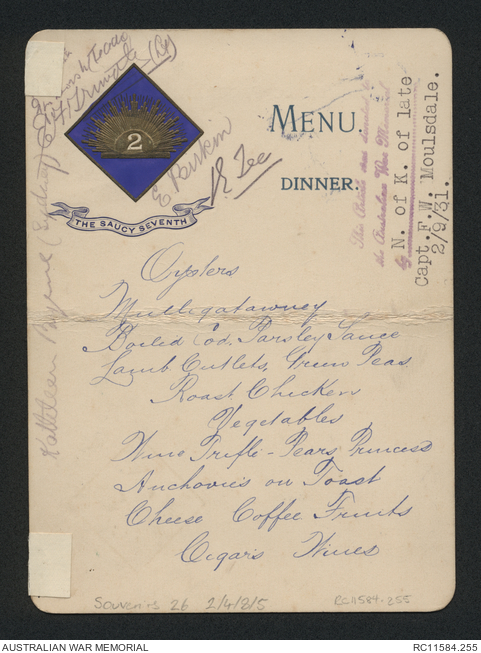 2
THE SAUCY SEVENTH
MENU.
DINNER:
E Birkin
Kathleen (Sydney)
This Article was donated to
the Australian War Memorial
by
N. of K. of late
Capt. F.W. Moulsdale.
2/9/31.
Oysters
Mulligatawney
Boiled Cod, Parsley Sauce
Lamb Cutlets, Green Peas
Roast Chicken
Vegetables
Wine Trifle - Pears Princess
Anchovies on Toast
Cheese Coffee Fruits
Cigars Wines
Souvenirs 26 2/4/8/5
RC11584.255
AUSTRALIAN WAR MEMORIAL
RC11584.255